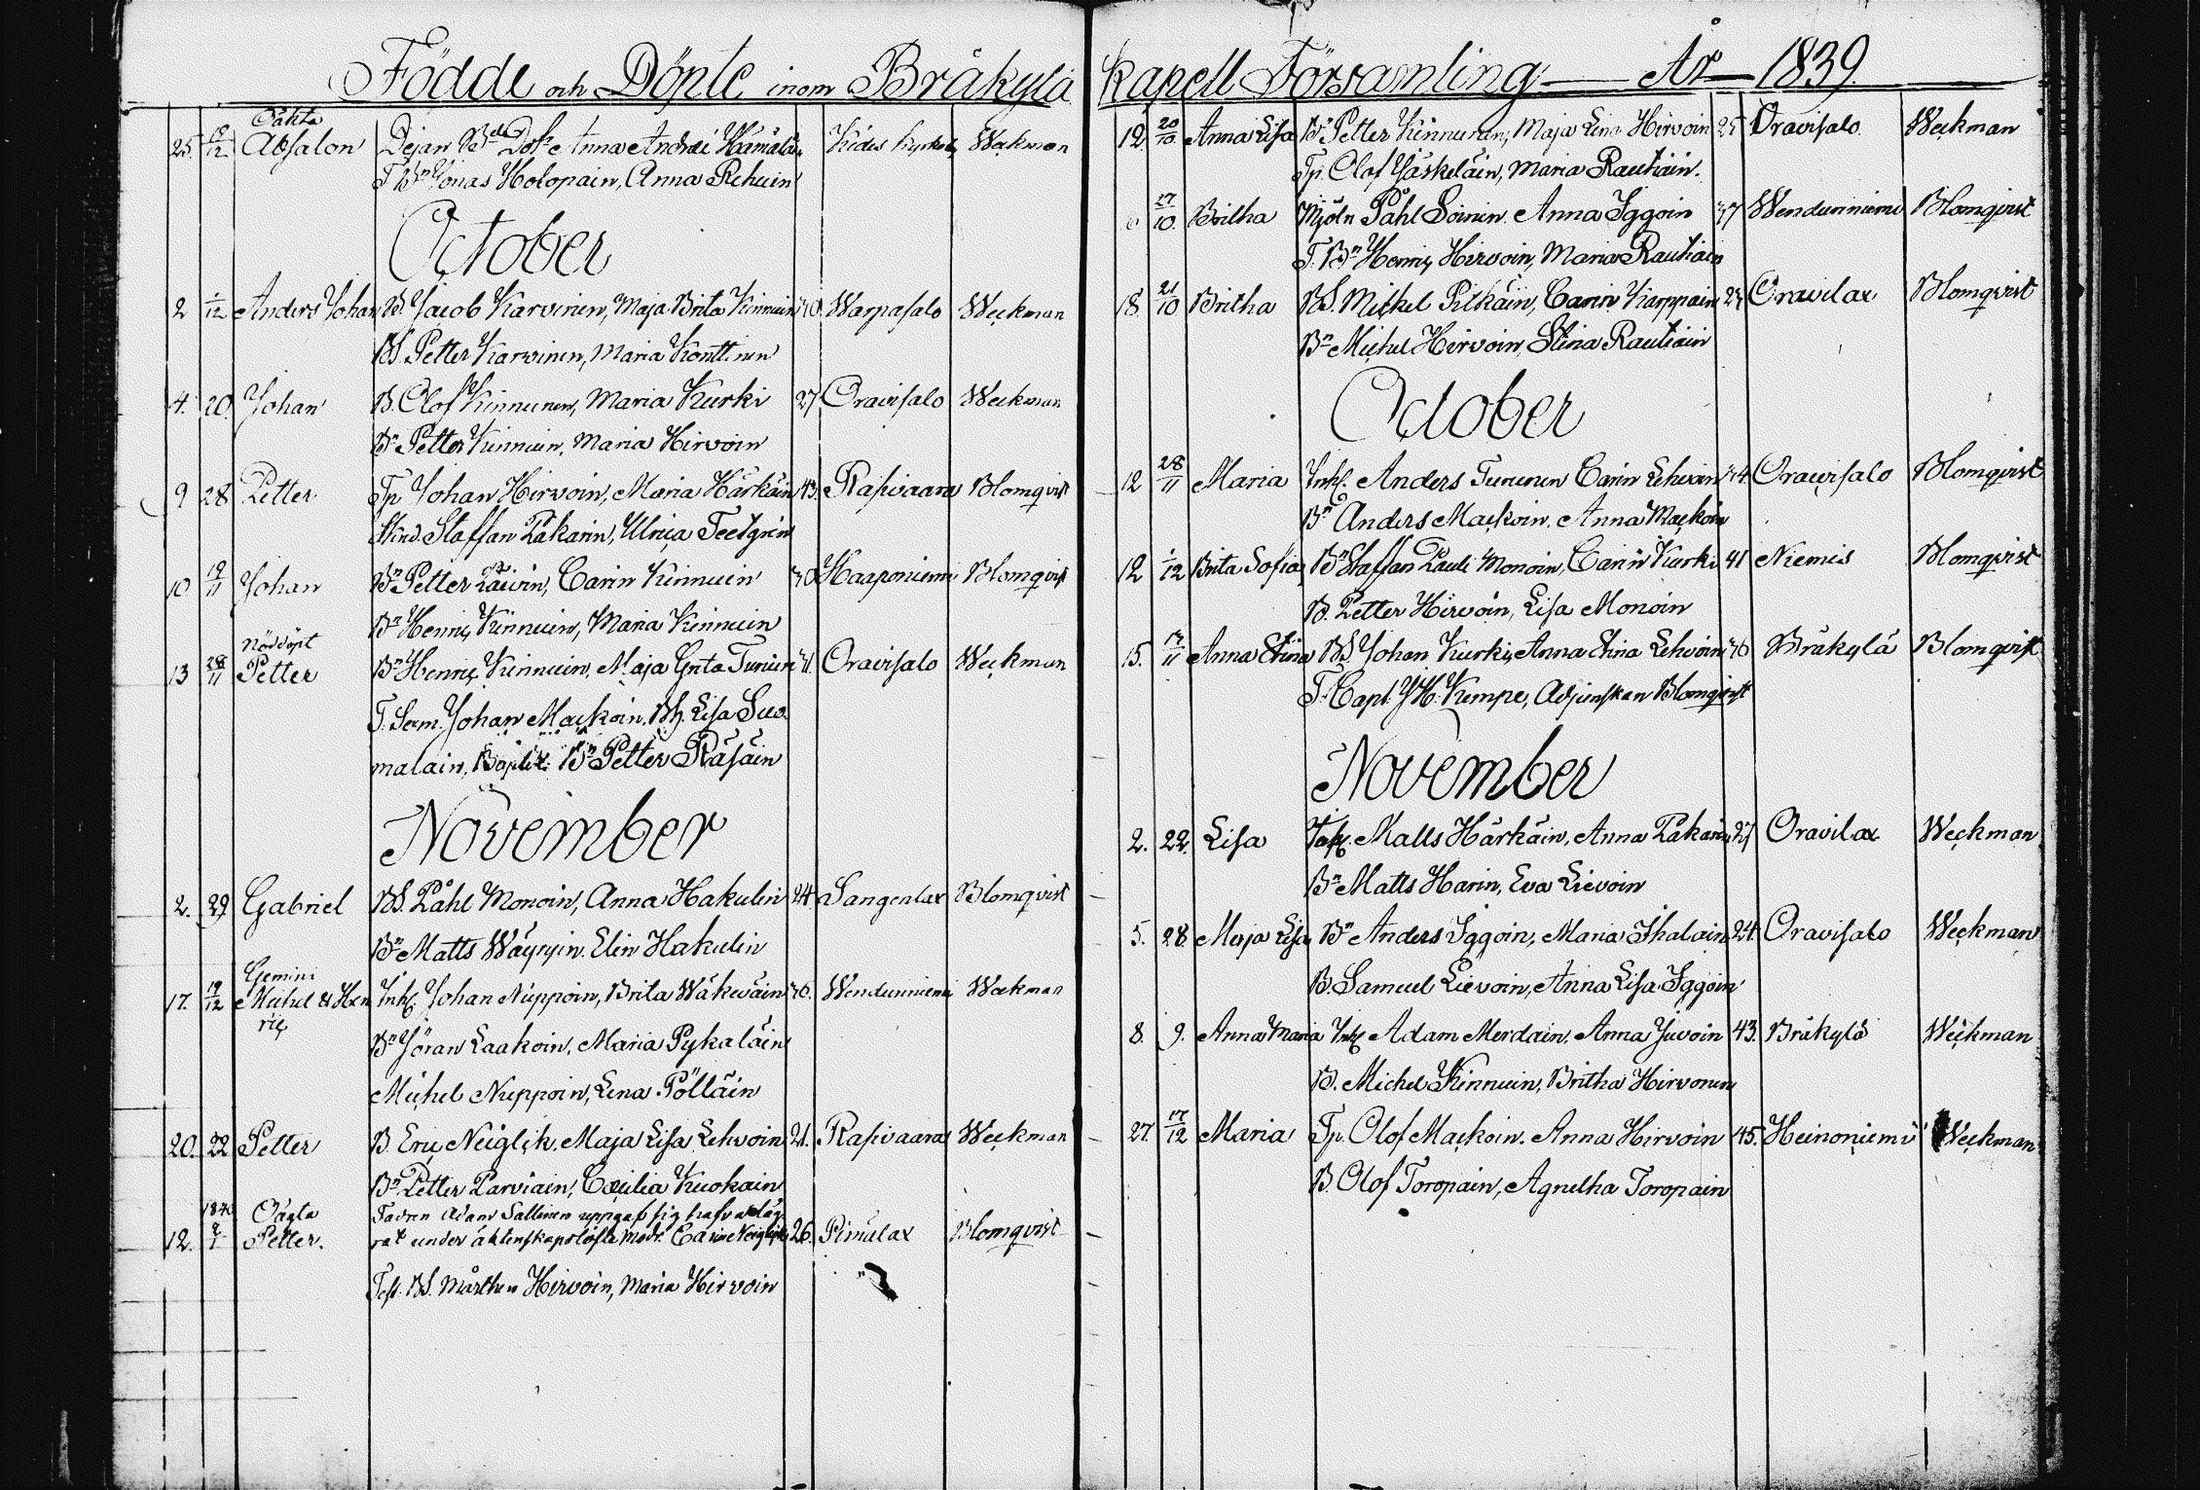 Födde och Döpte inom Bråkylä
Oäkta
25. 19/12 Absalon Pejan Anna Andréi Kides Weckman
T. Bn Jonas Holopain, Anna Rehuin
October
2 1/12 Anders Johan BS. Jacob Karvinen, Maja Brita Kinnuin 30. Warpasalo Weckman
BS. Petter Karvinen, Maria
4. 20. Johan B. Olof Kinnunen, Maria Kurki 27 Oravisalo Weckman
Bn Petter Kinnuin, Maria Hirvoin
9 28 Petter Tp. Johan Hirvoin, Maria Härkäin 43. Rasivaara Blomqvist
Staffan Pakarin, Ulrica
10 19/11 Johan Bn Petter Carin Kinnuin 30 Haaponiemi Blomqvist
Bn Henric Kinnuin, Maria Kinnuin
Nöddöpt
13 28/11 Petter Bn Henric Kinnuin, Maja Grita Oravisalo Weckman
T. Johan Mackoin, Lisa Suo
malain, Bn Petter Räsäin
November
2. 29 Gabriel BS. Påhl Monoin, Anna Hakulin 24 Sangenlax Blomqvist
Bn Matts Wäyryin. Elin Hakulin
Gemini
17. 19/12 Michel & Hen Inh. Johan Nuppoin, Brita Wäkeväin 36. Wendunniemi Weckman
ric
Bn Jöran Laakoin, Maria Pykäläin
Michel Nuppoin, Lena Pölläin
20. 22 Petter B. Eric Neiglick, Maja Lisa Lehvoin 21. Rasivaara Weckman
Bn Petter Parviain, Cæcilia Kuokain
1840 Oägta Fadren Adam Sallinen uppgaf sig hafva läg
12. Petter. rat under äktenskapslöfte Modr. Carin Neiglick 26. Pimälax Blomqvist
Test. BS. Mårthen Hirvoin, Maria Hirvoin
Kapell Församling År 1839.
12. 20/10 Anna Lisa Bn Petter Kinnunen, Maja Lena Hirvoin 25 Oravisalo Weckman
Tp. Olof Jäskeläin, Maria Rautiain.
27/10 Britha Mjöln Påhl Soinin. Anna Iggoin 37 Wendunniemi Blomqvist
T. Bn Henric Hirvoin, Maria Rautiain
18. 21/10 Britha BS. Michel Pitkäin, Carin Karppain Oravilax Blomqvist
Bn Michel Hirvoin, Stina Rautiain
October
12 28/11 Maria Inh. Anders Turunen Carin Lehvoin 34 Oravisalo Blomqvist
Bn Anders Mackoin. Anna Mackoin
12 1/12 Brita Sofia Bn Staffan Pauli Monoin, Carin Kurki 41 Niemis Blomqvist
B. Petter Hirvoin, Lisa Monoin
15. 17/11 Anna Stina BS. Johan Kurki, Anna Stina Lehvoin 36 Bråkylä Blomqvist
T. Capl. J H. Kempe, Adjunskan Blomqvist
November
2. 22. Lisa Inh. Matts Härkäin, Anna Pakarin 37 Oravilax Weckman
Bn Matts Harin, Eva Lievoin
5. 28. Maja Lisa Bn Anders Iggoin, Maria Ihalain 24. Oravisalo Weckman
B. Samuel Lievoin, Anna Lisa Iggoin
8. 9. Anna Maria Inh. Adam Merdain, Anna Juvoin 43. Bråkylä Weckman
B. Michel Kinnuin, Britha Hirvonen
27. 17/12 Maria Tp. Olof Mackoin. Anna Hirvoin 45. Heinoniemi Weckman
B. Olof Toropain, Agnetha Toropain